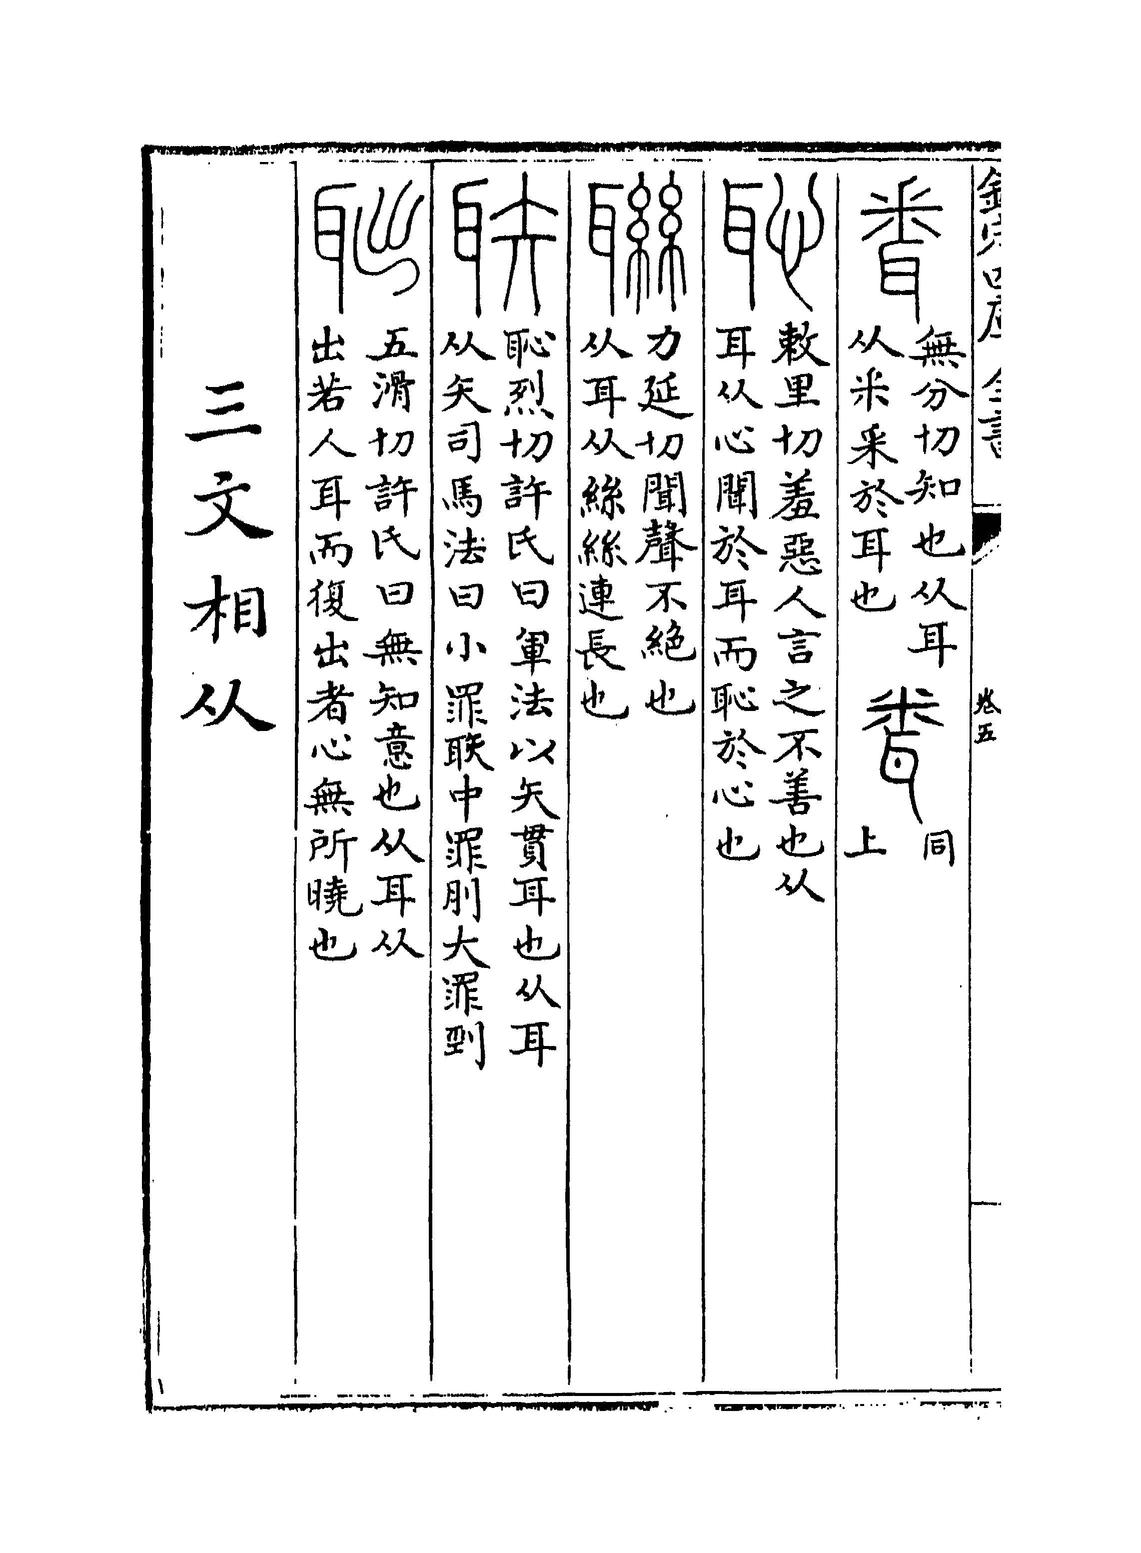 欽定四庫全書
卷五
無分切知也从耳
从釆釆於耳也
同
上
恥
敕里切羞惡人言之不善也从
耳从心聞於耳而恥於心也
聯
力延切聞聲不絶也
从耳从絲絲連長也
聅
恥烈切許氏曰軍法以矢貫耳也从耳
从矢司馬法曰小罪聅中罪刖大罪剄
聉
五滑切許氏曰無知意也从耳从
出若人耳而復出者心無所曉也
三文相从